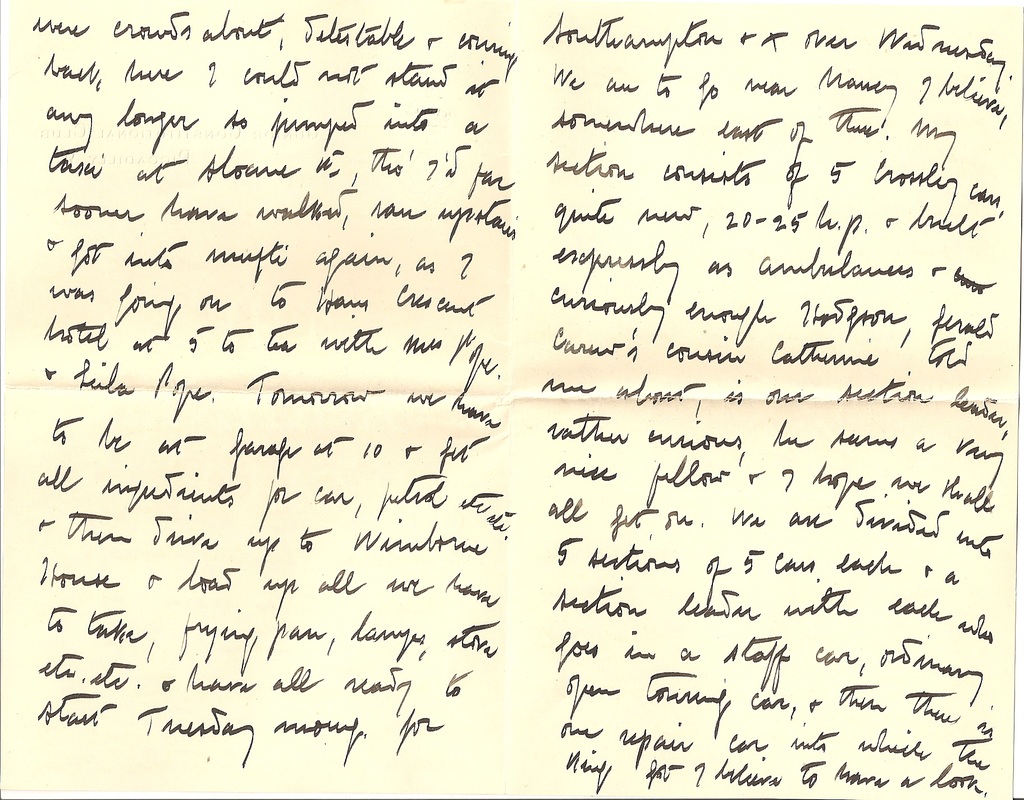 were crowds about, detestable & coming
back, here I could not stand it
any longer so jumped into a
taxi at Sloane St, tho' I'd far
sooner have walked, ran upstairs
& got into mufti again, as I
was going on to Hans Crescent
hotel at 5 to tea with Mrs Pope
& Leila Pope. Tomorrow we have
to be at garage at 10 & get
all ingredients for car, petrol etc etc
& then drive up to Wimborne
House & load up all we have
to take, frying pan, lamps, stove
etc. etc. & have all ready to
start Tuesday morng. for
Southampton & x over Wednesday.
We are to go near Nancy I believe,
somewhere east of there. My
section consists of 5 Crossley cars,
quite new, 20-25 h.p. & built
expressly as ambulances &
curiously enough Hodgson, Gerald
Carew's cousin Catherine told
me about, is our section leader,
rather curious, he seems a very
nice fellow & I hope we shall
all get on. We are divided into
5 sections of 5 cars each & a
section leader with each who
goes in a staff car, ordinary
open touring car, & then there is
one repair car into which the
King got I believe to have a look.